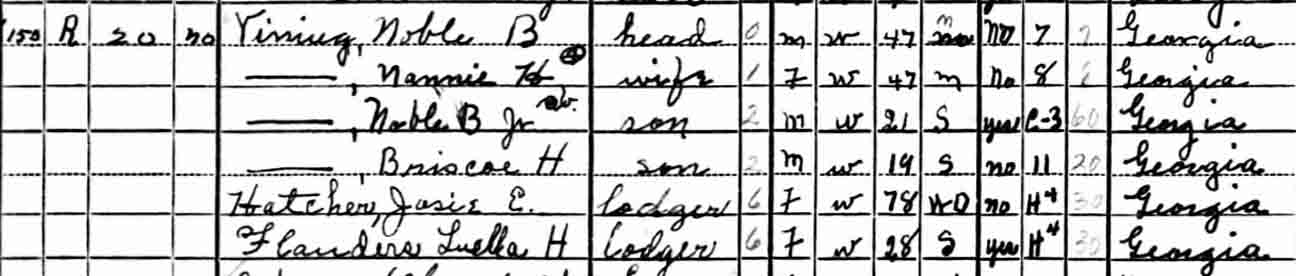 150 R 20 no Vining, Noble B head 0 m w 47 m No 7 7 Georgia
——, Nannie H wife 1 F w 47 m No 8 Georgia
——, Noble B Jr ab. son 2 m w 21 S yes C-3 60 Georgia
——, Briscoe H son 2 m w 19 S no 11 20 Georgia
Hatcher, Josie E. lodger 6 F w 78 WD no H4 30 Georgia
Flanders Luella H lodger 6 F w 28 S yes H4 30 Georgia